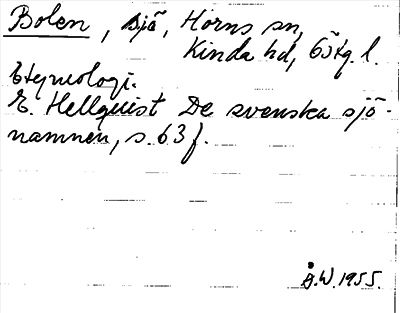 Bolen, sjö, Horns sn,
Kinda hd, Östg l.
Etymologi.
E. Hellquist De svenska sjö-
namnen, s. 63 f.
Å.W. 1955.